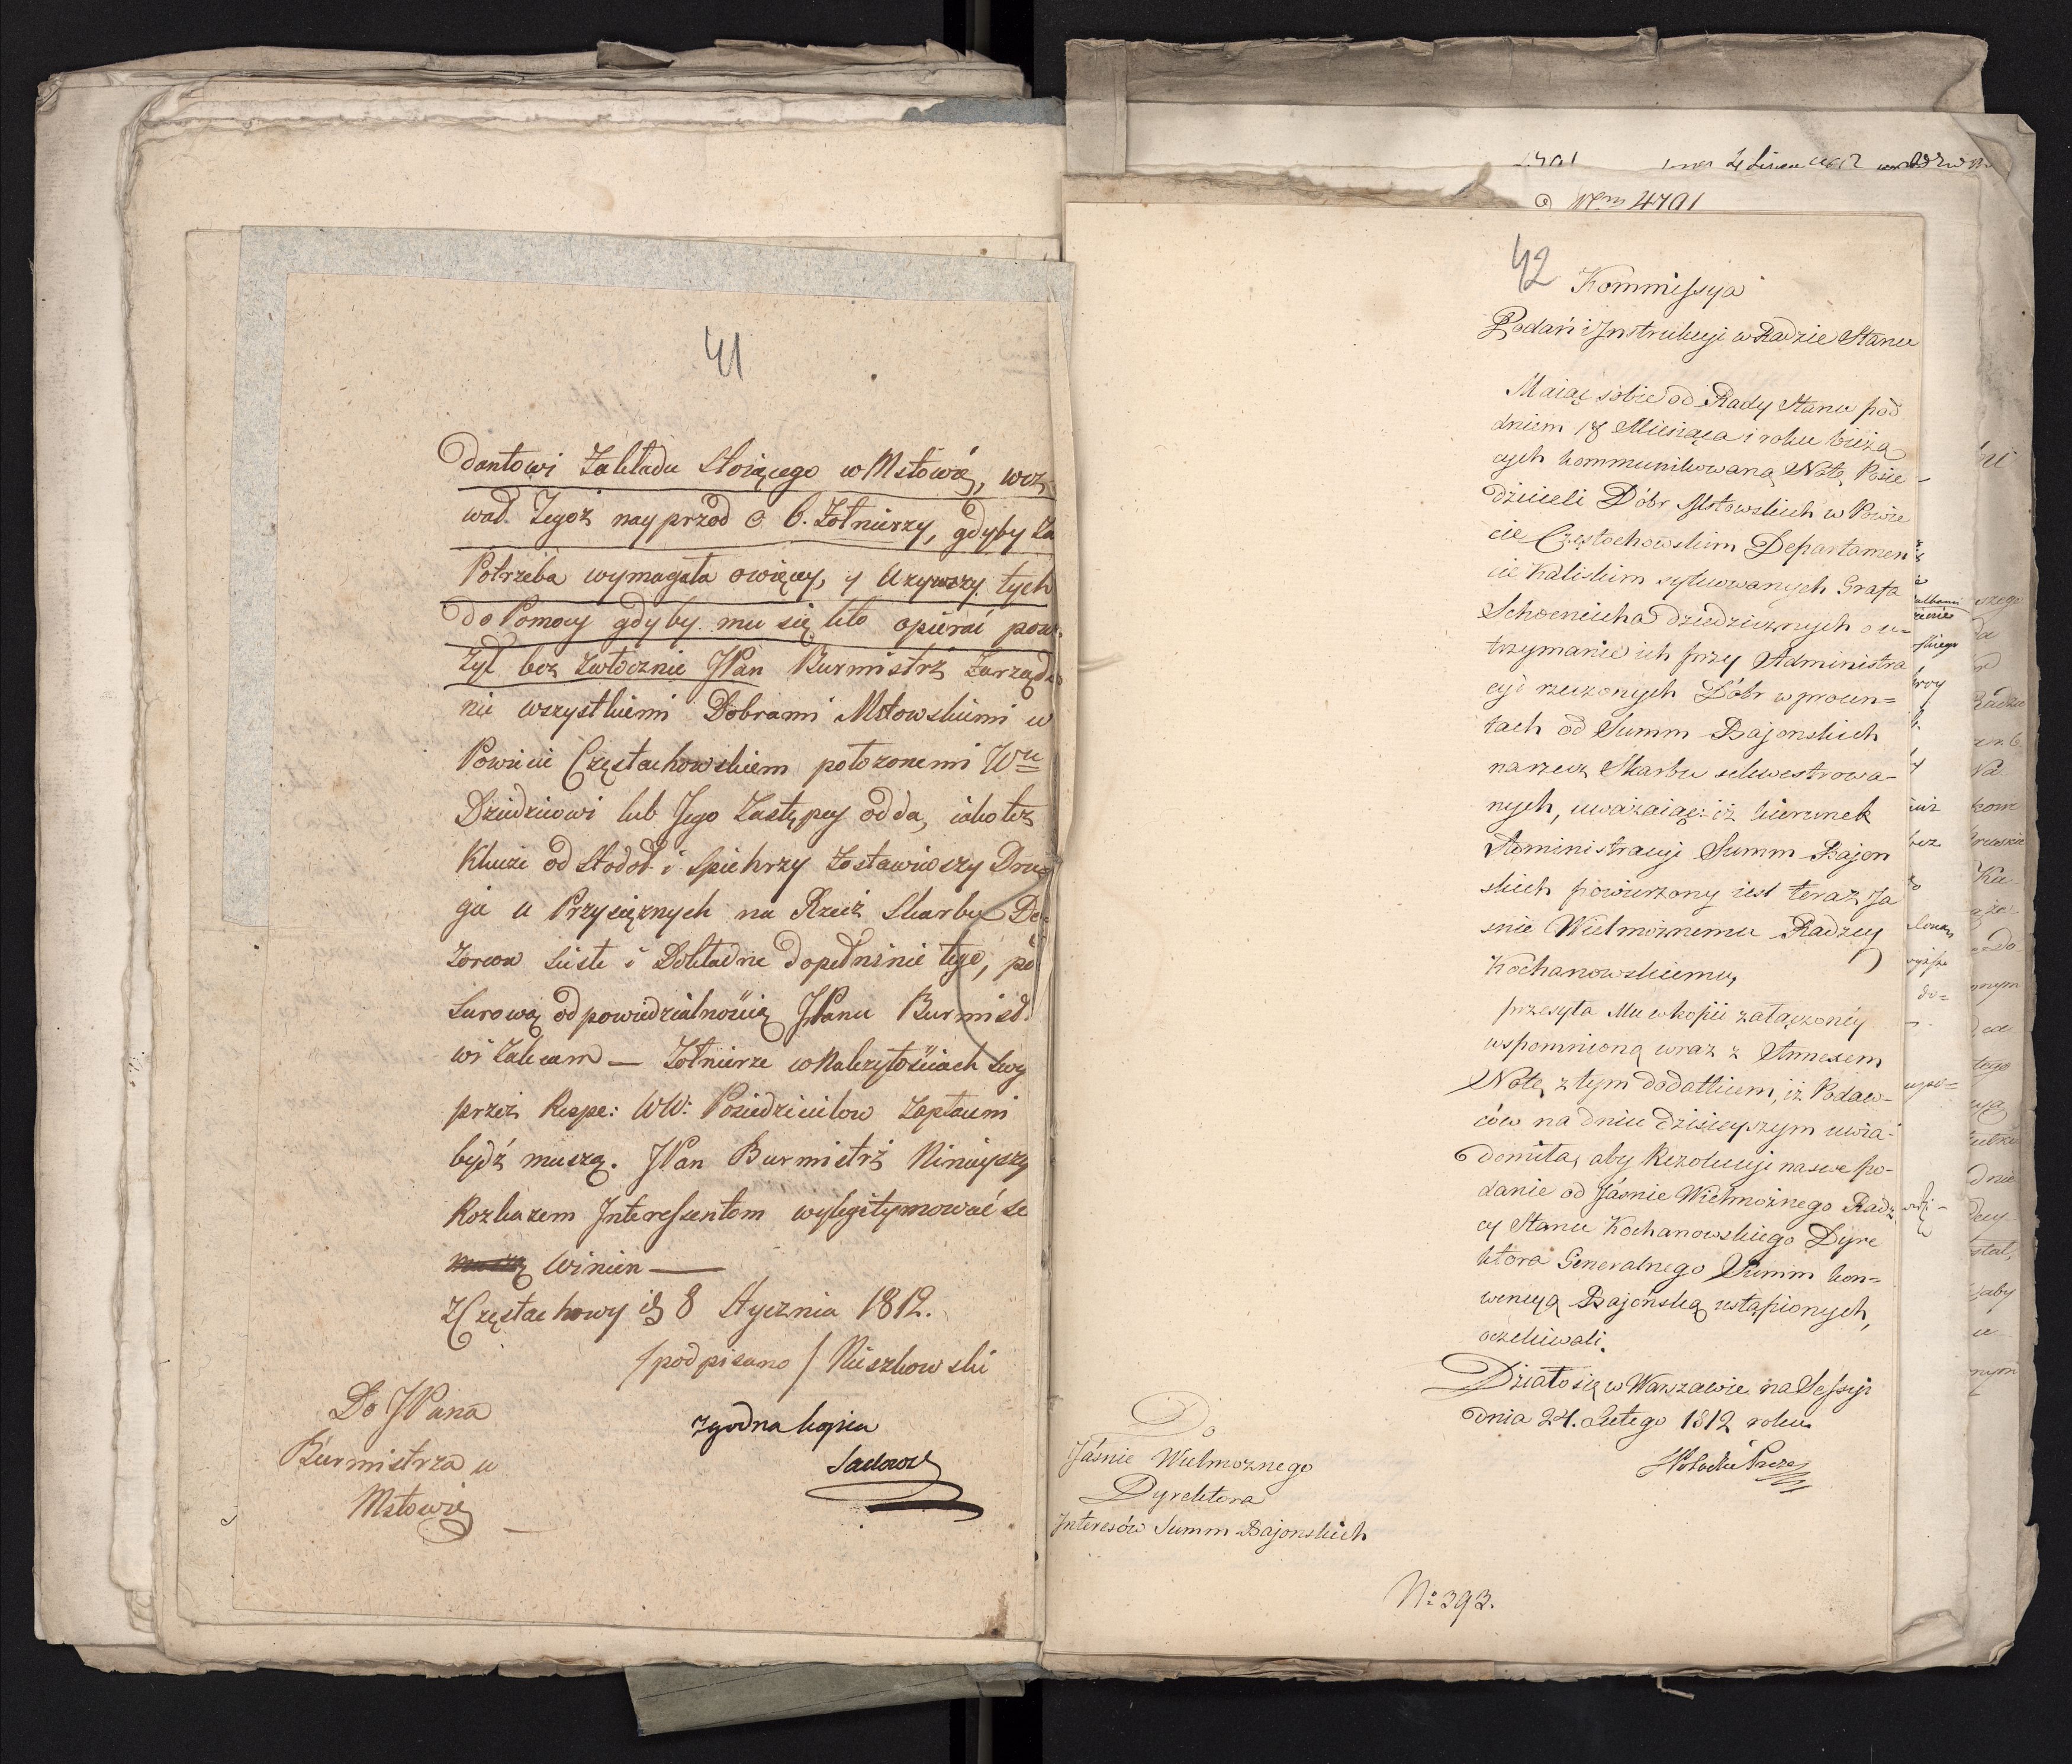 41
dantowi Zakładu Stoiącego w Mstowie, wez-
wał Tegoż nayprzod o 6. Żołnierzy, gdyby za
Potrzeba wymagała owięcey, y Uzywszy tych
do Pomocy gdyby mu się kto opierać pow-
żył bez zwłocznie JPan Burmistrz Zarząd
nie wszystkiemi Dobrami Mstowskiemi w
Powiecie Częstochowskiem położonemi Wu
Dziedzicowi lub Jego Zastępcy odda, iako też
Klucze od Stodoł i Spichrzy Zostawiwszy Dru-
gie u Przysięznych na Rzecz Skarbu Do-
zorców Liste i Dokładne dopełninie tego, po
Surową odpowiedzialnością JPanu Burmist.
wi Zalecam — Żołnierze w Należytościach Swy
przez Respe: WW: Posiedzicilow Zapłaceni
bydź muszą. JPan Burmistrz Ninieyszy
Rozkazem Interessentom wylegitymować se
winien —
z Częstochowy d 8 Stycznia 1812.
/ podpisano / Nieszkowski
Do JPana
Burmistrza w
Mstowie
zgodna kopia
42
Kommissya
Podań i Instrukcyi w Radzie Stanu
Maiąc sobie od Rady Stanu pod
dniem 18 Miesiąca i roku bieżą
cych kommunikowaną Notę Posie-
dzicieli Dóbr Mstowskich w Powie
cie Częstochowskim Departamen
cie Kaliskim sytuowanych Grafa
Schoeneicha dziedzicznych o u-
trzymanie ich przy Administra
cyi rzeczonych Dóbr w procen-
tach od Summ Bajonskich
na rzecz Skarbu sekwestrowa-
nych, uważaiąc: iż kierunek
Administracyi Summ Bajon
skich powierzony iest teraz Ja
śnie Wielmożnemu Radzcy
Kochanowskiemu,
przesyła Mu w kopii załączoney
wspomnioną wraz z Annexem
Notę z tym dodatkiem, iż Podaw-
ców na dniu dzisieyszym uwia-
domiła, aby Rezolucyi na swe po-
danie od Jaśnie Wielmożnego Radz
cy Stanu Kochanowskiego Dyre
ktora Generalnego Summ kon-
wencyą Bajońską ustąpionych,
oczekiwali.
Działo się w Warszawie na Sessyi
dnia 24. Lutego 1812 roku
Do
Jaśnie Wielmożnego
Dyrektora
Interesów Summ Bajonskich
No 393.